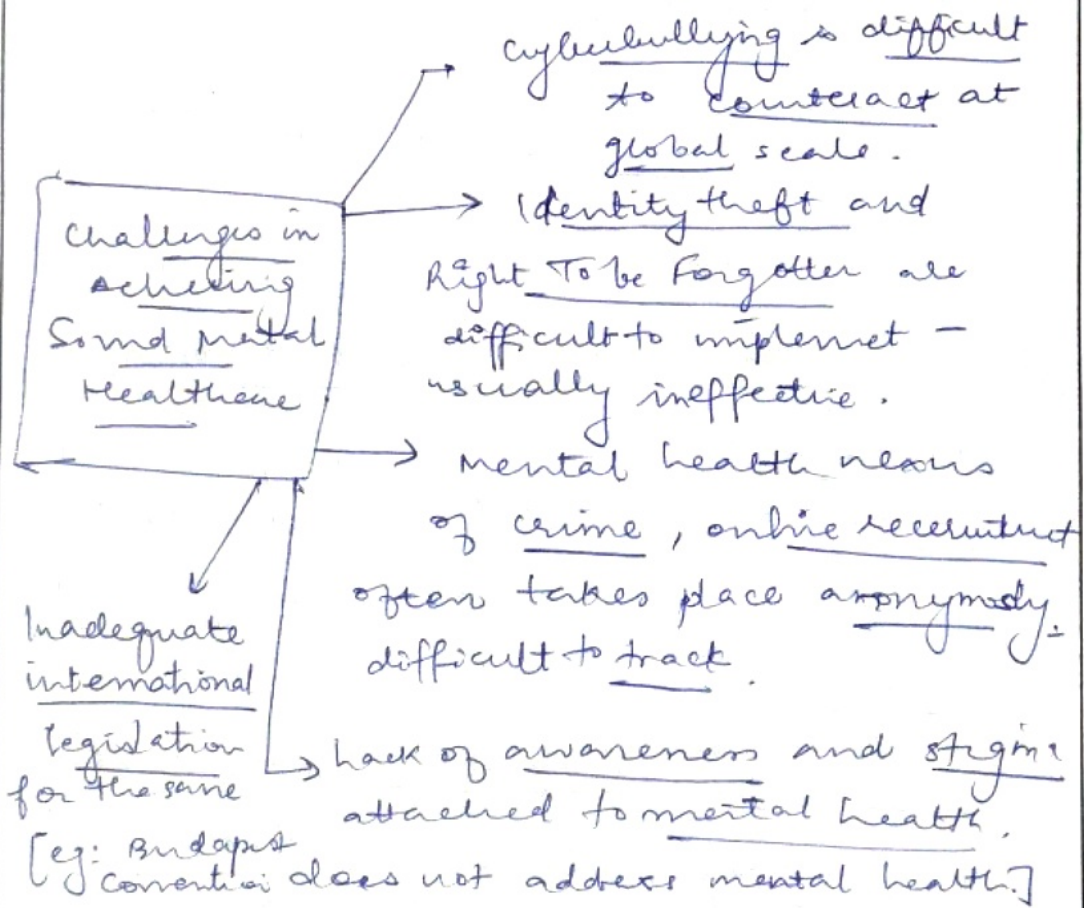 Challenges in
Acheiving
Sound Mental
Healthcare
Cyberbullying is difficult
to counteract at
global scale.
Identity theft and
Right To be Forgotten are
difficult to implemet -
usually ineffective.
Mental health nexus
of crime, online recruitmet
often takes place anonymosly.
difficult to track.
Lack of awareness and stigma
attached to mental health.
Inadequate
international
legislation
for the same
[eg: Budapest
Convention does not address mental health.]